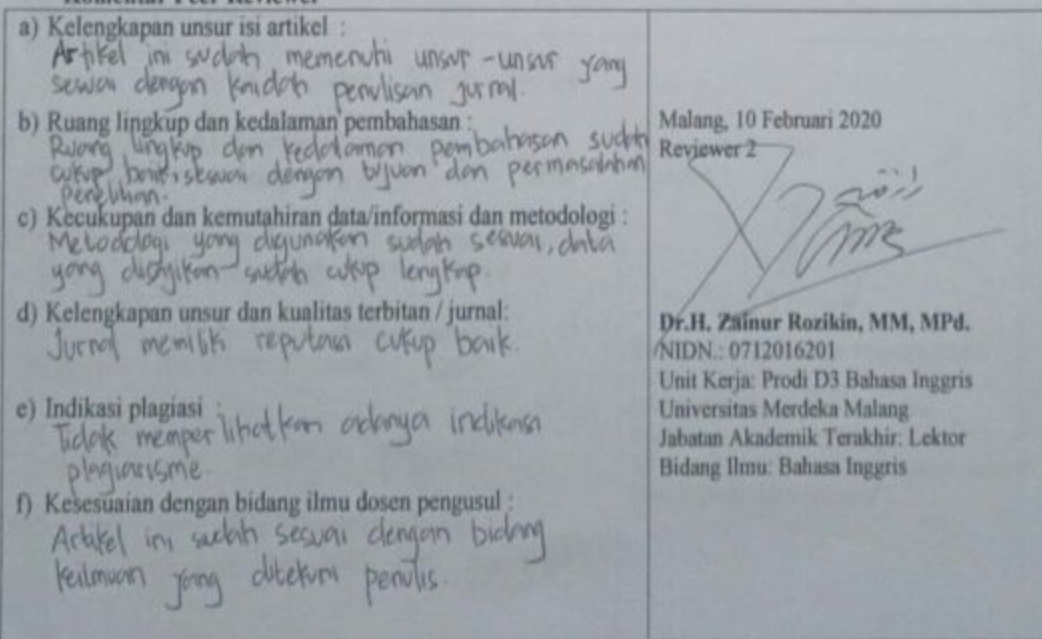 Komentar Peer Reviewer
a) Kelengkapan unsur isi artikel :
Artikel ini sudah memenuhi unsur-unsur yang
sesuai dengan kaidah penulisan jurnal.
b) Ruang lingkup dan kedalaman pembahasan :
Ruang lingkup dan kedalaman pembahasan sudah
cukup baik, sesuai dengan tujuan dan permasalahan
penelitian.
c) Kecukupan dan kemutahiran data/informasi dan metodologi :
Metodologi yang digunakan sudah sesuai, data
yang disajikan sudah cukup lengkap.
d) Kelengkapan unsur dan kualitas terbitan / jurnal:
Jurnal memiliki reputasi cukup baik.
e) Indikasi plagiasi :
Tidak memperlihatkan adanya indikasi
plagiarisme.
f) Kesesuaian dengan bidang ilmu dosen pengusul :
Artikel ini sudah sesuai dengan bidang
keilmuan yang ditekuni penulis.
Malang, 10 Februari 2020
Reviewer 2
Dr.H. Zainur Rozikin, MM, MPd.
NIDN.: 0712016201
Unit Kerja: Prodi D3 Bahasa Inggris
Universitas Merdeka Malang
Jabatan Akademik Terakhir: Lektor
Bidang Ilmu: Bahasa Inggris